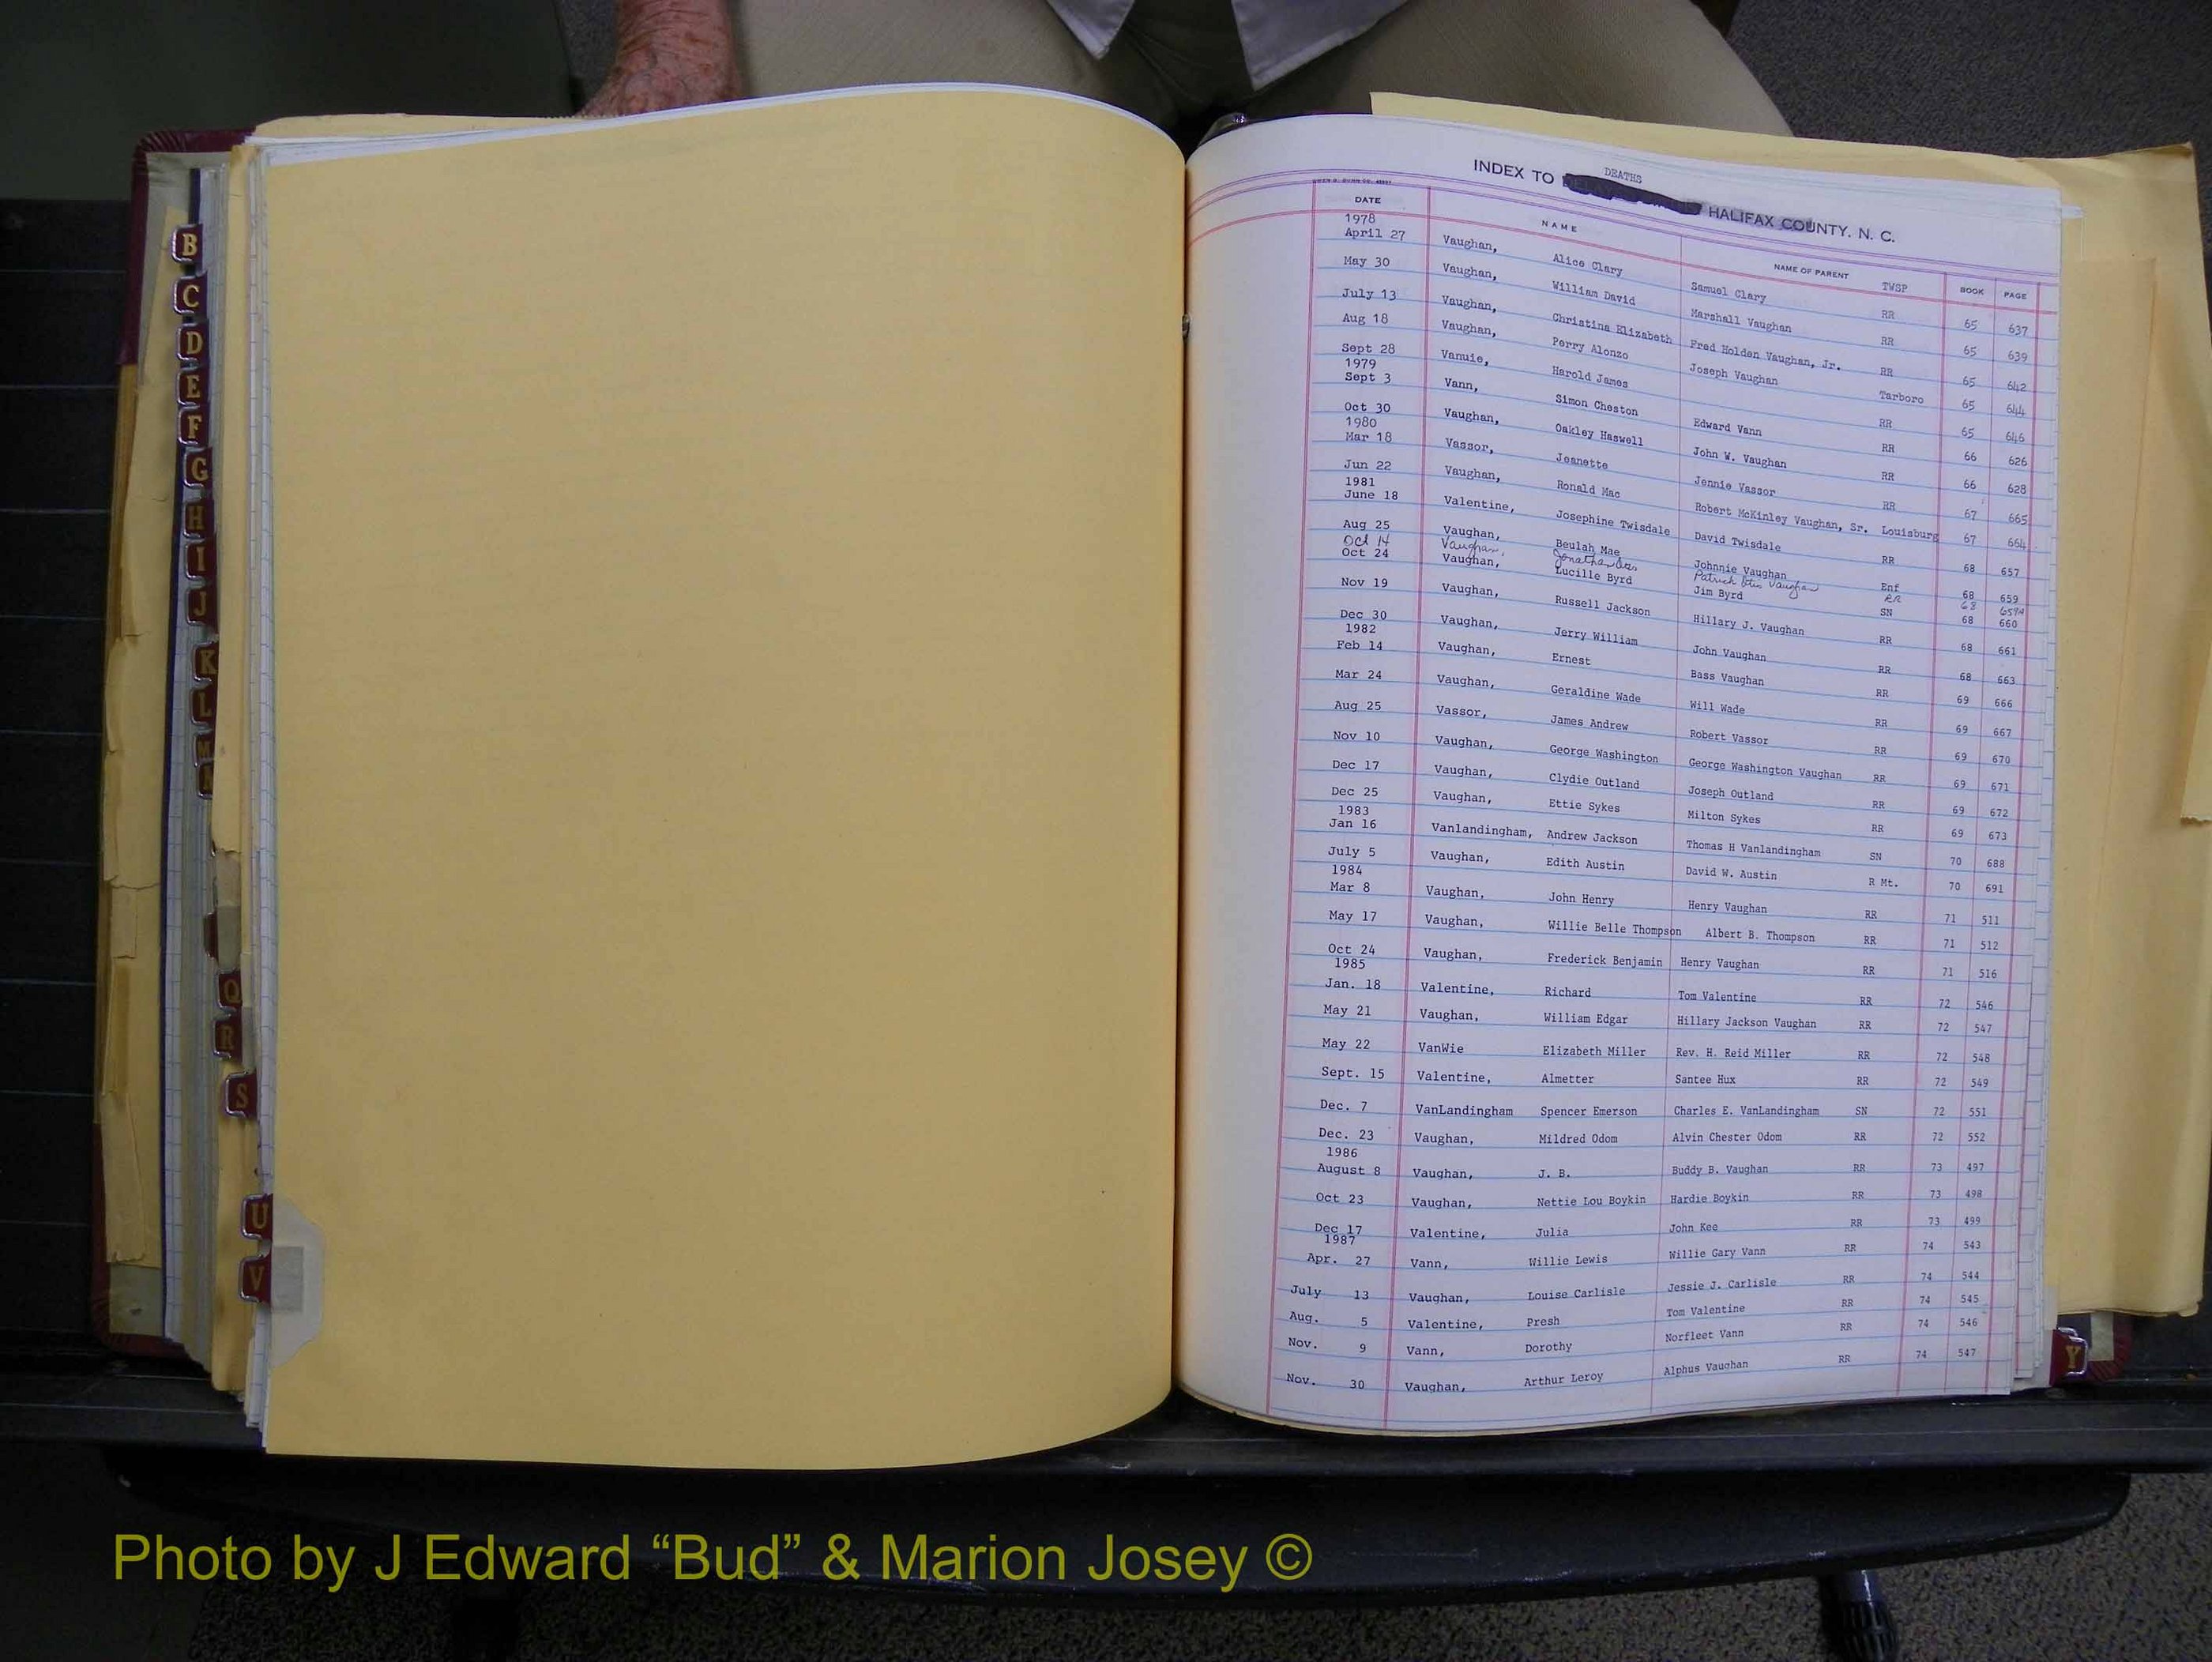 INDEX TO DEATHS HALIFAX COUNTY, N. C.
DATE NAME NAME OF PARENT TWSP BOOK PAGE
1978
April 27 Vaughan, Alice Clary Samuel Clary RR 65 637
May 30 Vaughan, William David Marshall Vaughan RR 65 639
July 13 Vaughan, Christina Elizabeth Fred Holden Vaughan, Jr. RR 65 642
Aug 18 Vaughan, Perry Alonzo Joseph Vaughan Tarboro 65 644
Sept 28 Vanuie, Harold James RR 65 646
1979
Sept 3 Vann, Simon Cheston Edward Vann RR 66 626
Oct 30 Vaughan, Oakley Haswell John W. Vaughan RR 66 628
1980
Mar 18 Vassor, Jeanette Jennie Vassor RR 67 665
Jun 22 Vaughan, Ronald Mac Robert McKinley Vaughan, Sr. Louisburg 67 664
1981
June 18 Valentine, Josephine Twisdale David Twisdale RR 68 657
Aug 25 Vaughan, Beulah Mae Johnnie Vaughan Enf 68 659
Oct 14 Vaughan, Jonathan Patrick Otis Vaughan RR 68 659A
Oct 24 Vaughan, Lucille Byrd Jim Byrd SN 68 660
Nov 19 Vaughan, Russell Jackson Hillary J. Vaughan RR 68 661
Dec 30 Vaughan, Jerry William John Vaughan RR 68 663
1982
Feb 14 Vaughan, Ernest Bass Vaughan RR 69 666
Mar 24 Vaughan, Geraldine Wade Will Wade RR 69 667
Aug 25 Vassor, James Andrew Robert Vassor RR 69 670
Nov 10 Vaughan, George Washington George Washington Vaughan RR 69 671
Dec 17 Vaughan, Clydie Outland Joseph Outland RR 69 672
Dec 25 Vaughan, Ettie Sykes Milton Sykes RR 69 673
1983
Jan 16 Vanlandingham, Andrew Jackson Thomas H Vanlandingham SN 70 688
July 5 Vaughan, Edith Austin David W. Austin R Mt. 70 691
1984
Mar 8 Vaughan, John Henry Henry Vaughan RR 71 511
May 17 Vaughan, Willie Belle Thompson Albert B. Thompson RR 71 512
Oct 24 Vaughan, Frederick Benjamin Henry Vaughan RR 71 516
1985
Jan. 18 Valentine, Richard Tom Valentine RR 72 546
May 21 Vaughan, William Edgar Hillary Jackson Vaughan RR 72 547
May 22 VanWie Elizabeth Miller Rev. H. Reid Miller RR 72 548
Sept. 15 Valentine, Almetter Santee Hux RR 72 549
Dec. 7 VanLandingham Spencer Emerson Charles E. VanLandingham SN 72 551
Dec. 23 Vaughan, Mildred Odom Alvin Chester Odom RR 72 552
1986
August 8 Vaughan, J. B. Buddy B. Vaughan RR 73 497
Oct 23 Vaughan, Nettie Lou Boykin Hardie Boykin RR 73 498
Dec 17 Valentine, Julia John Kee RR 73 499
1987
Apr. 27 Vann, Willie Lewis Willie Gary Vann RR 74 543
July 13 Vaughan, Louise Carlisle Jessie J. Carlisle RR 74 544
Aug. 5 Valentine, Presh Tom Valentine RR 74 545
Nov. 9 Vann, Dorothy Norfleet Vann RR 74 546
Nov. 30 Vaughan, Arthur Leroy Alphus Vaughan RR 74 547
B
C
D
E
F
G
H
I
J
K
L
M
Q
R
S
U
V
Y
Photo by J Edward “Bud” & Marion Josey ©